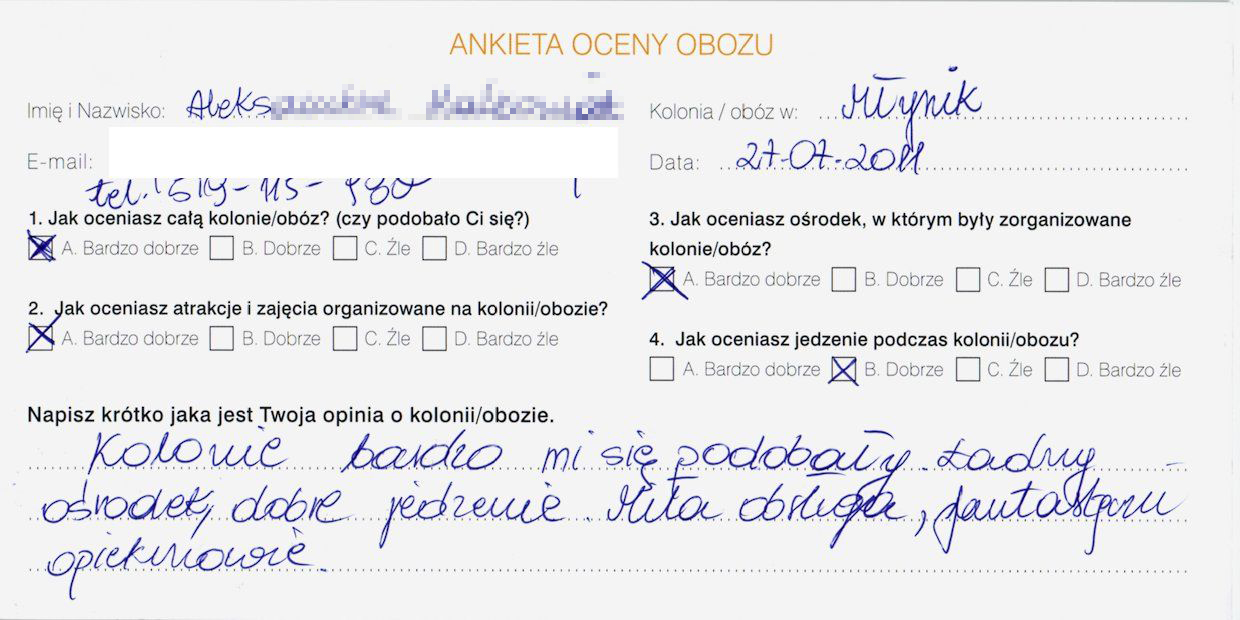 ANKIETA OCENY OBOZU
Imię i Nazwisko: Aleks
Kolonia / obóz w: Młynik
E-mail:
Data: 27-07-2011
tel.
1. Jak oceniasz całą kolonie/obóz? (czy podobało Ci się?)
A. Bardzo dobrze B. Dobrze C. Źle D. Bardzo źle
2. Jak oceniasz atrakcje i zajęcia organizowane na kolonii/obozie?
A. Bardzo dobrze B. Dobrze C. Źle D. Bardzo źle
3. Jak oceniasz ośrodek, w którym były zorganizowane
kolonie/obóz?
A. Bardzo dobrze B. Dobrze C. Źle D. Bardzo źle
4. Jak oceniasz jedzenie podczas kolonii/obozu?
A. Bardzo dobrze B. Dobrze C. Źle D. Bardzo źle
Napisz krótko jaka jest Twoja opinia o kolonii/obozie.
Kolonie bardzo mi się podobały. Ładny
ośrodek, dobre jedzenie. Miła obsługa,
opiekunowie.